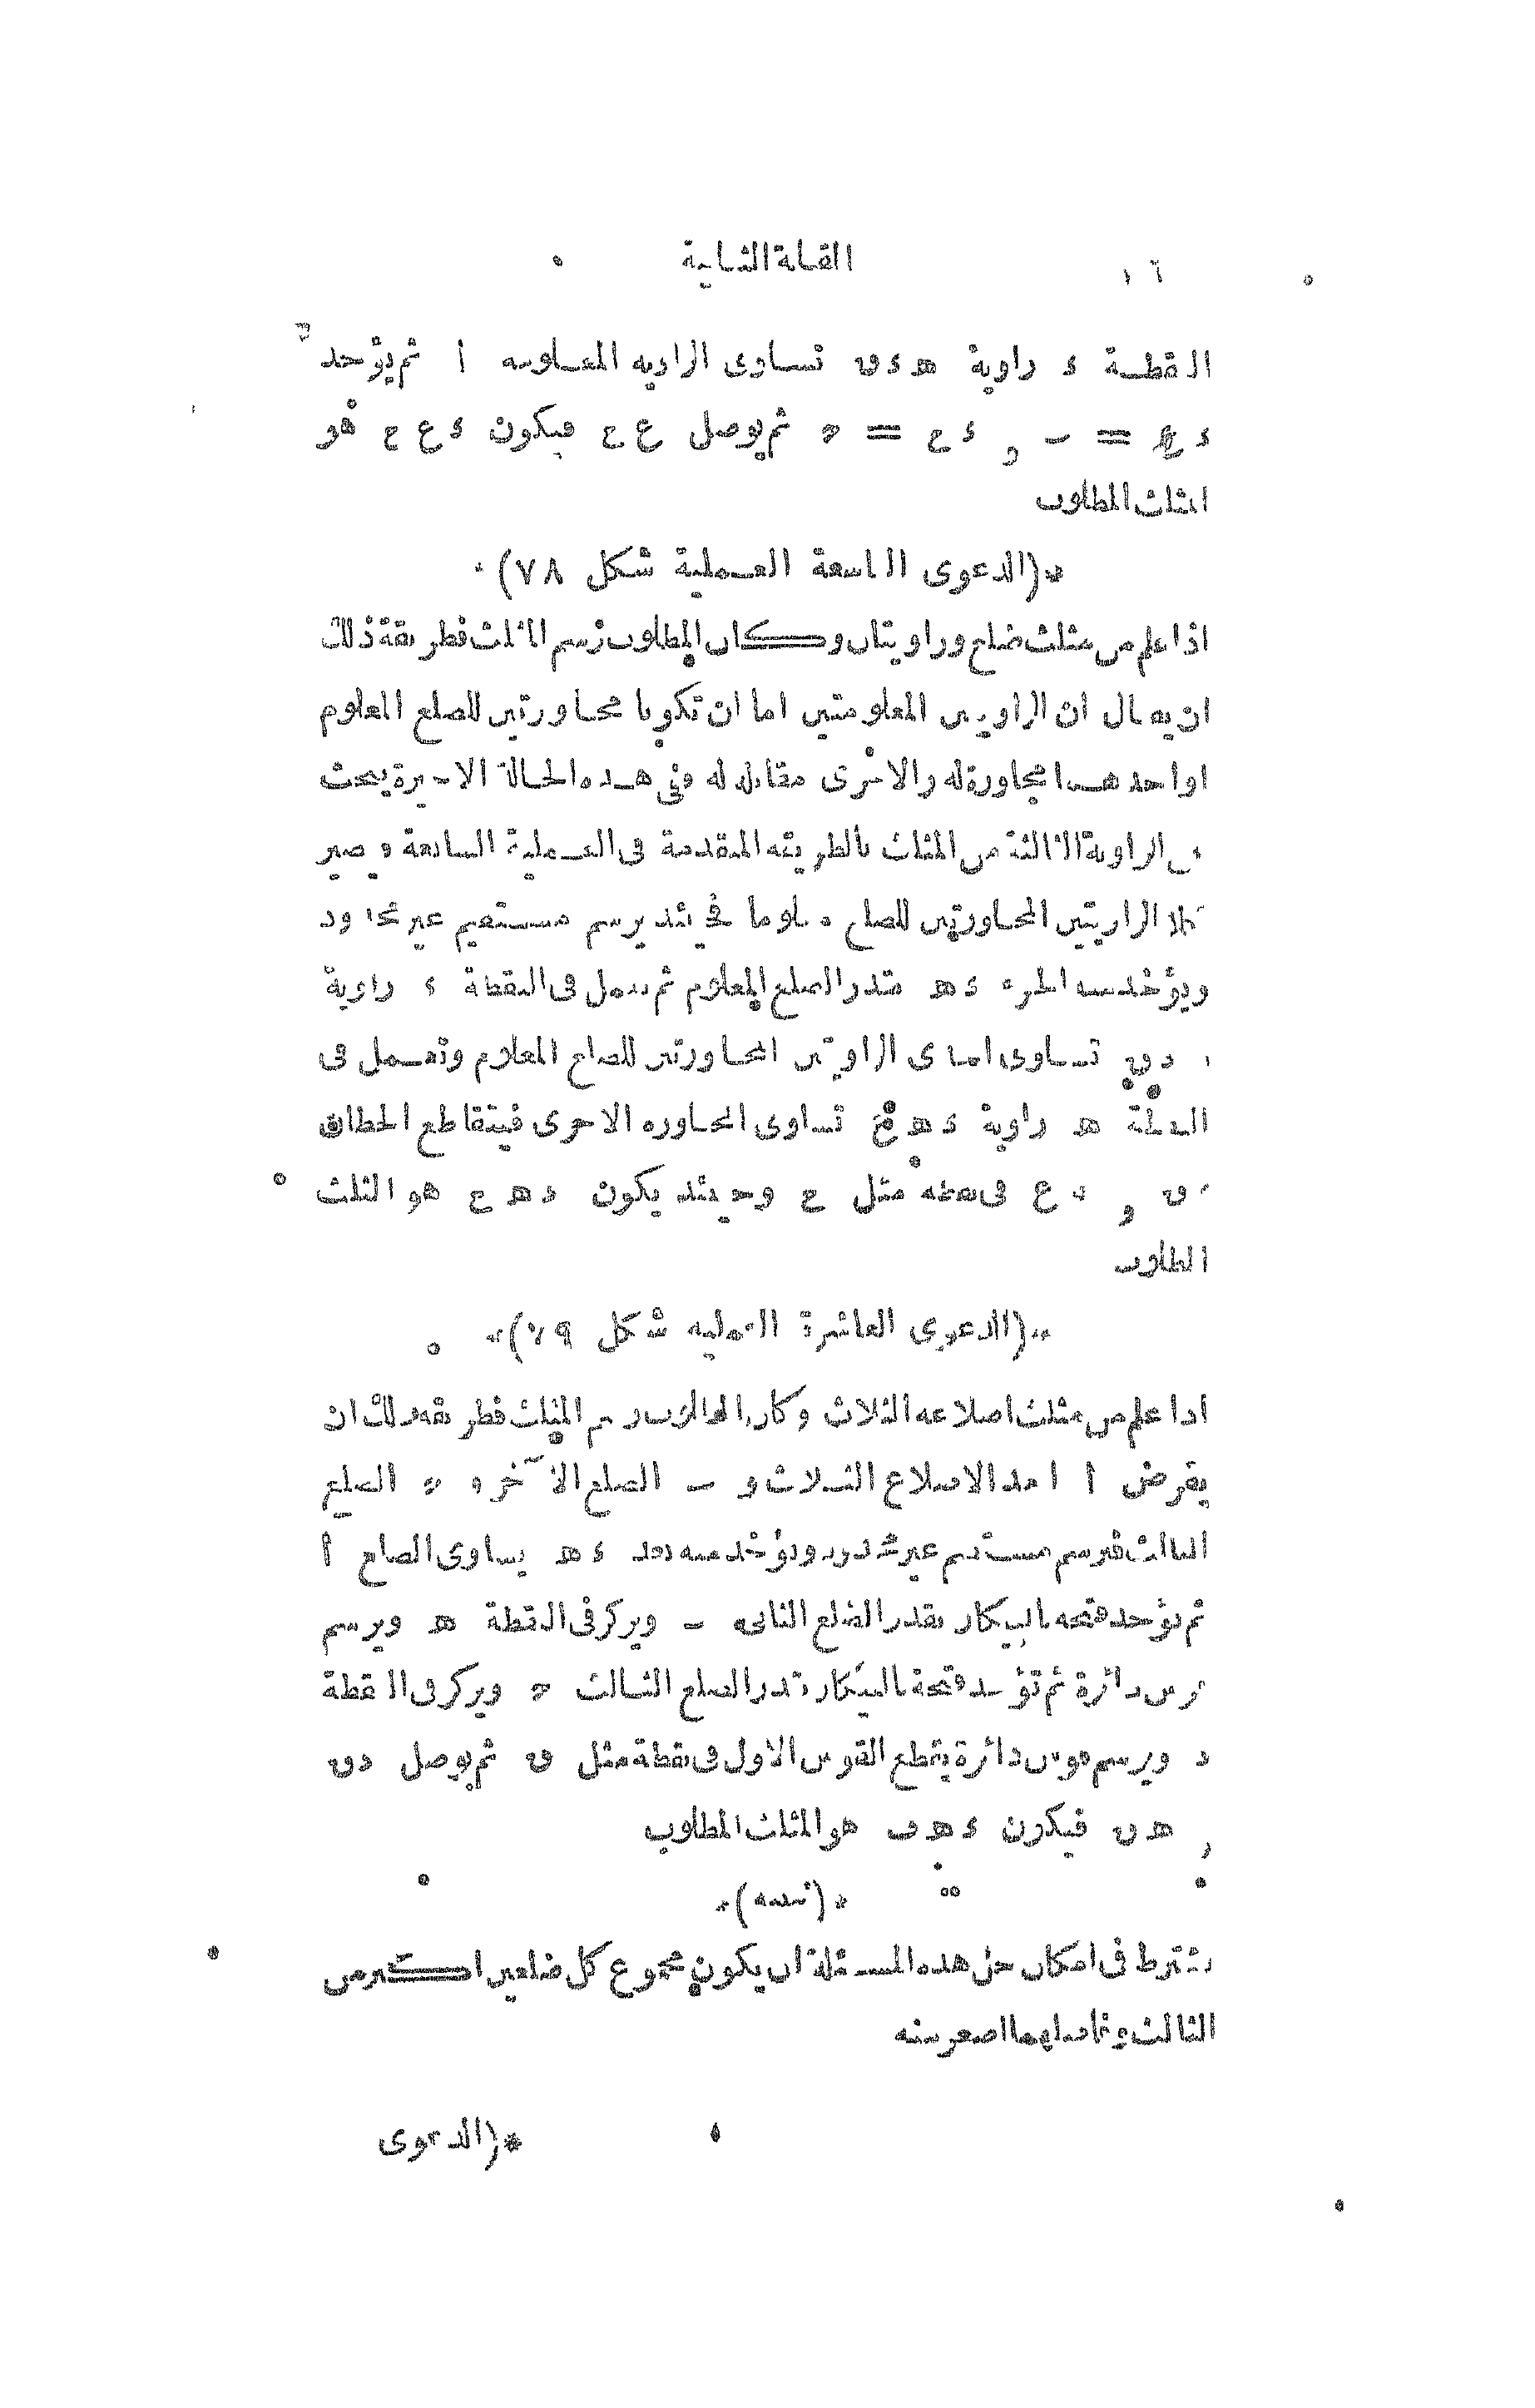 المقالة الثانية
النقطة ء زاوية هـ ء ں تساوى الزاوية المعلومة أ ثم يؤخذ
ء ع = ب و ء ح = ح ثم يوصل ع ح فيكون ء ع ح هو
المثلث المطلوب
*(الدعوى التاسعة العملية شكل ٧٨)*
اذا علم من مثلث ضلع وزاويتان وكان المطلوب رسم المثلث فطريقة ذلك
ان يقال ان الزاويتين المعلومتين اما ان تكونا مجاورتين للضلع المعلوم
او احداهما مجاورة له والاخرى مقابلة له ففى هذه الحالة الاخيرة يبحث
عن الزاوية الثالثة من المثلث بالطريقة المتقدمة فى العملية السابعة ويصير
كلا الزاويتين المجاورتين للضلع معلوما فحينئذ يرسم مستقيم غير محدود
ويؤخذ منه الجزء ء هـ بقدر الضلع المعلوم ثم تعمل فى النقطة ء زاوية
ء ں تساوى احدى الزاويتين المجاورتين للضلع المعلوم وتعمل فى
النقطة هـ زاوية ء هـ ع تساوى المجاورة الاخرى فيتقاطع الخطان
ں و ع فى نقطة مثل ح وحينئذ يكون ء هـ ح هو المثلث
المطلوب
*(الدعوى العاشرة العملية شكل ٧٩)*
اذا علم من مثلث اضلاعه الثلاث وكان المطلوب رسم المثلث فطريقة ذلك ان
يفرض أ احد الاضلاع الثلاث و ب الضلع الآخر و ح الضلع
الثالث فيرسم مستقيم غير محدود ويؤخذ منه بعد ء هـ يساوى الضلع أ
ثم تؤخذ فتحة بالبيكار بقدر الضلع الثانى ب ويركز فى النقطة هـ ويرسم
قوس دائرة ثم تؤخذ فتحة بالبيكار بقدر الضلع الثالث ح ويركز فى النقطة
ء ويرسم قوس دائرة يقطع القوس الاول فى نقطة مثل ں ثم يوصل ء ں
و هـ ں فيكون ء هـ ں هو المثلث المطلوب
*(تنبيه)*
يشترط فى امكان حل هذه المسئلة ان يكون مجموع كل ضلعين اكبر من
الثالث وتفاضلهما اصغر منه
*(الدعوى